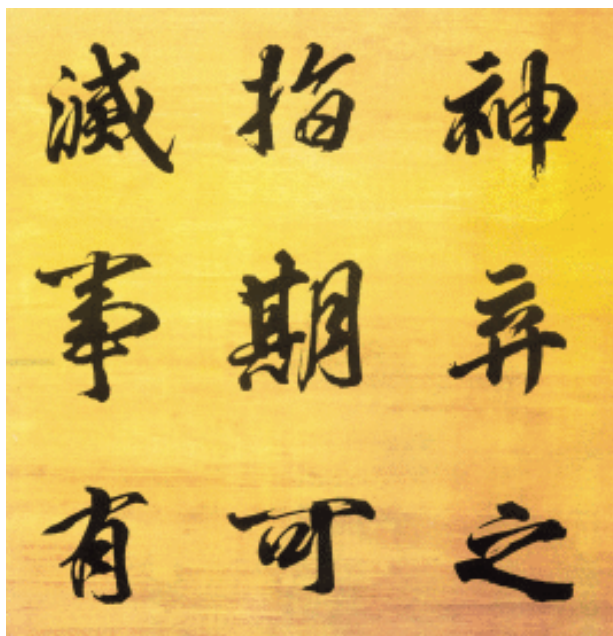 神弃之
指期可
滅事有